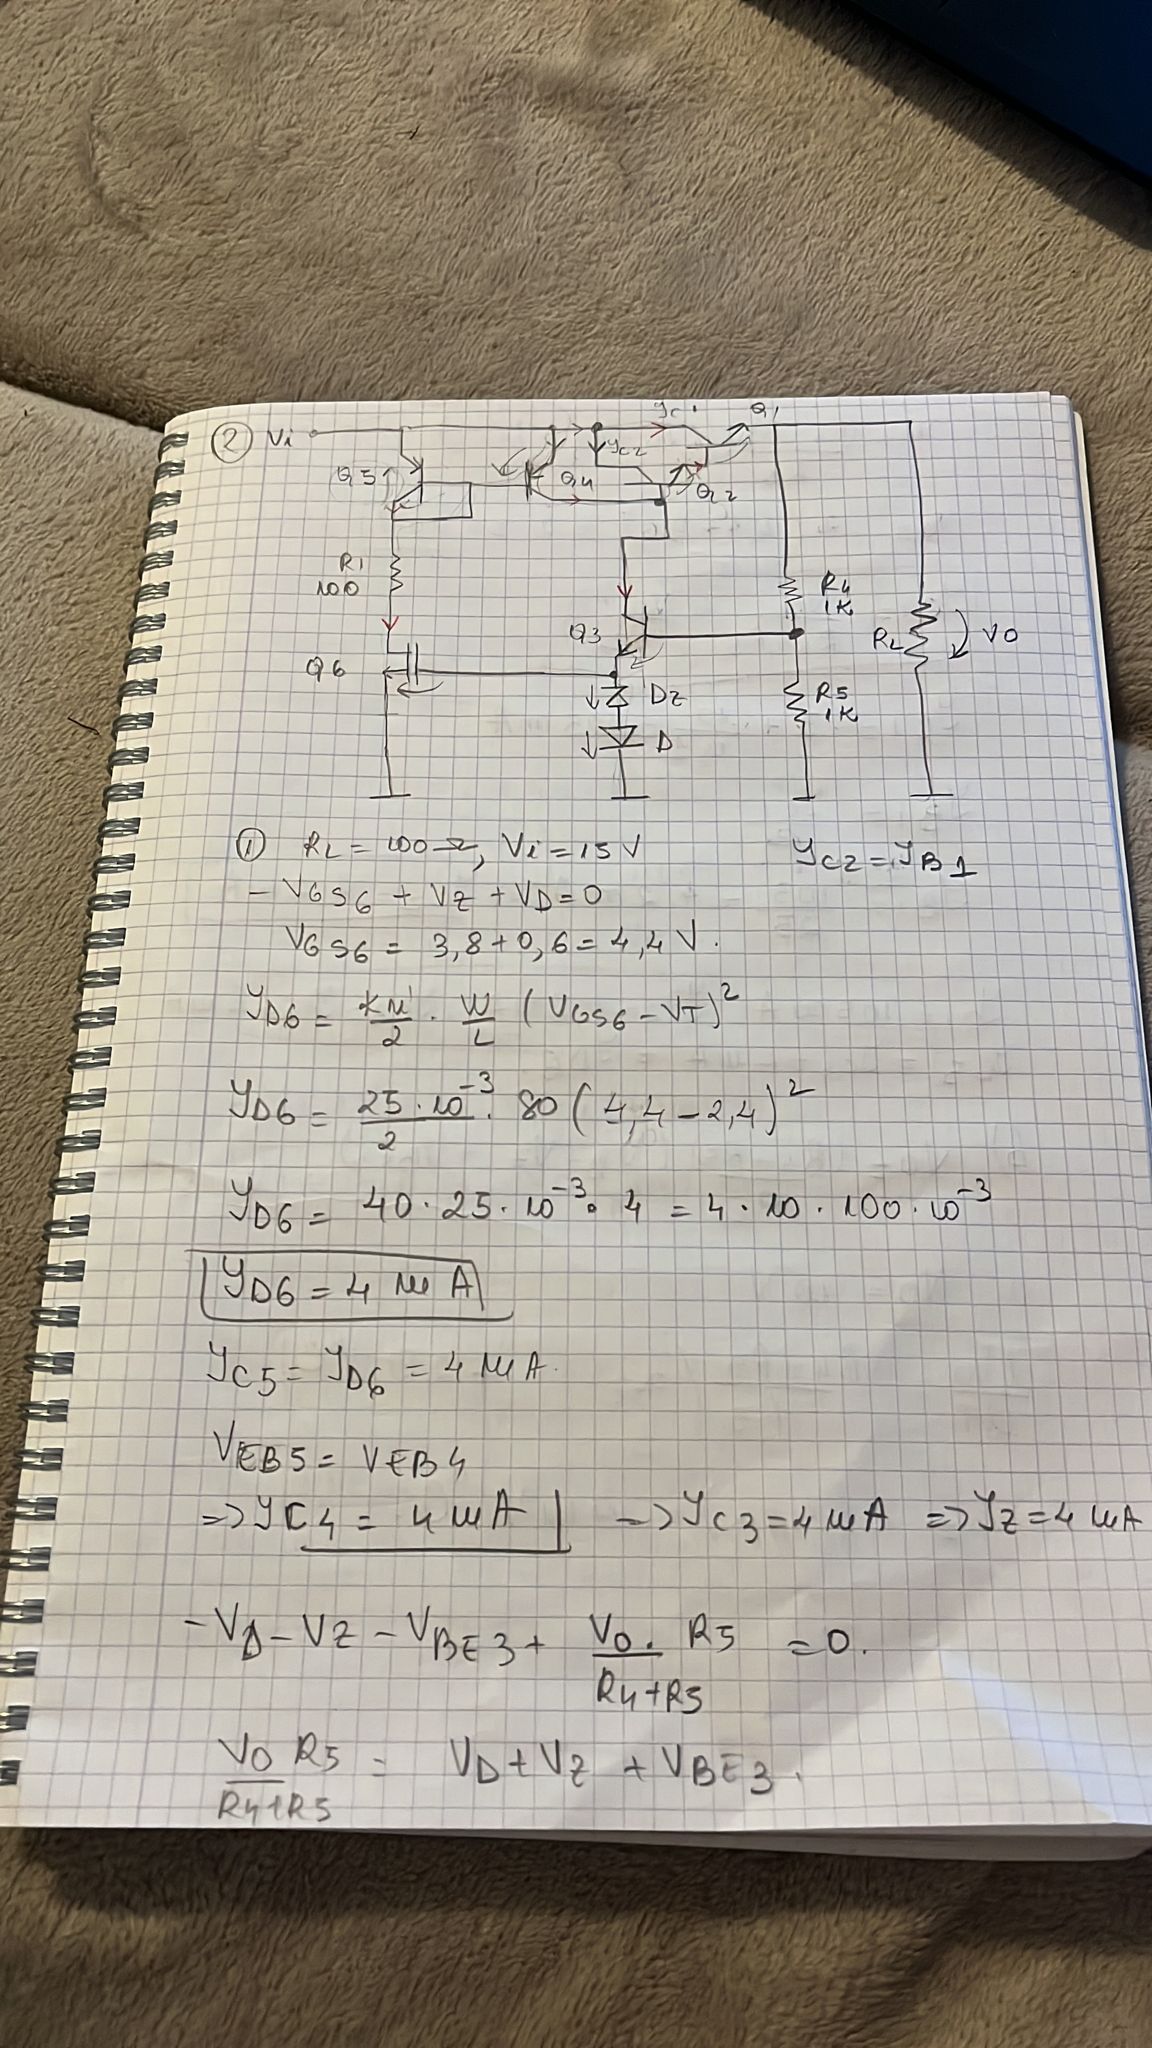 ② Vi
Yc1 Q1
Yc2
Q5 Q4 Q2
R1
100
R4
1K
Q3 RL VO
Q6
DZ
R5
1K
D
① RL = 100 Ω, Vi = 15 V YC2 = YB1
- VGS6 + VZ + VD = 0
VGS6 = 3,8 + 0,6 = 4,4 V.
YD6 = kn'/2 · W/L (VGS6 - VT)²
YD6 = 25·10⁻³/2 · 80 (4,4 - 2,4)²
YD6 = 40 · 25 · 10⁻³ · 4 = 4 · 10 · 100 · 10⁻³
YD6 = 4 mA
YC5 = YD6 = 4 mA.
VEB5 = VEB4
=> YC4 = 4 mA => YC3 = 4 mA => YZ = 4 mA
- VD - VZ - VBE3 + VO · R5/(R4+R5) = 0.
VO R5/(R4+R5) = VD + VZ + VBE3.